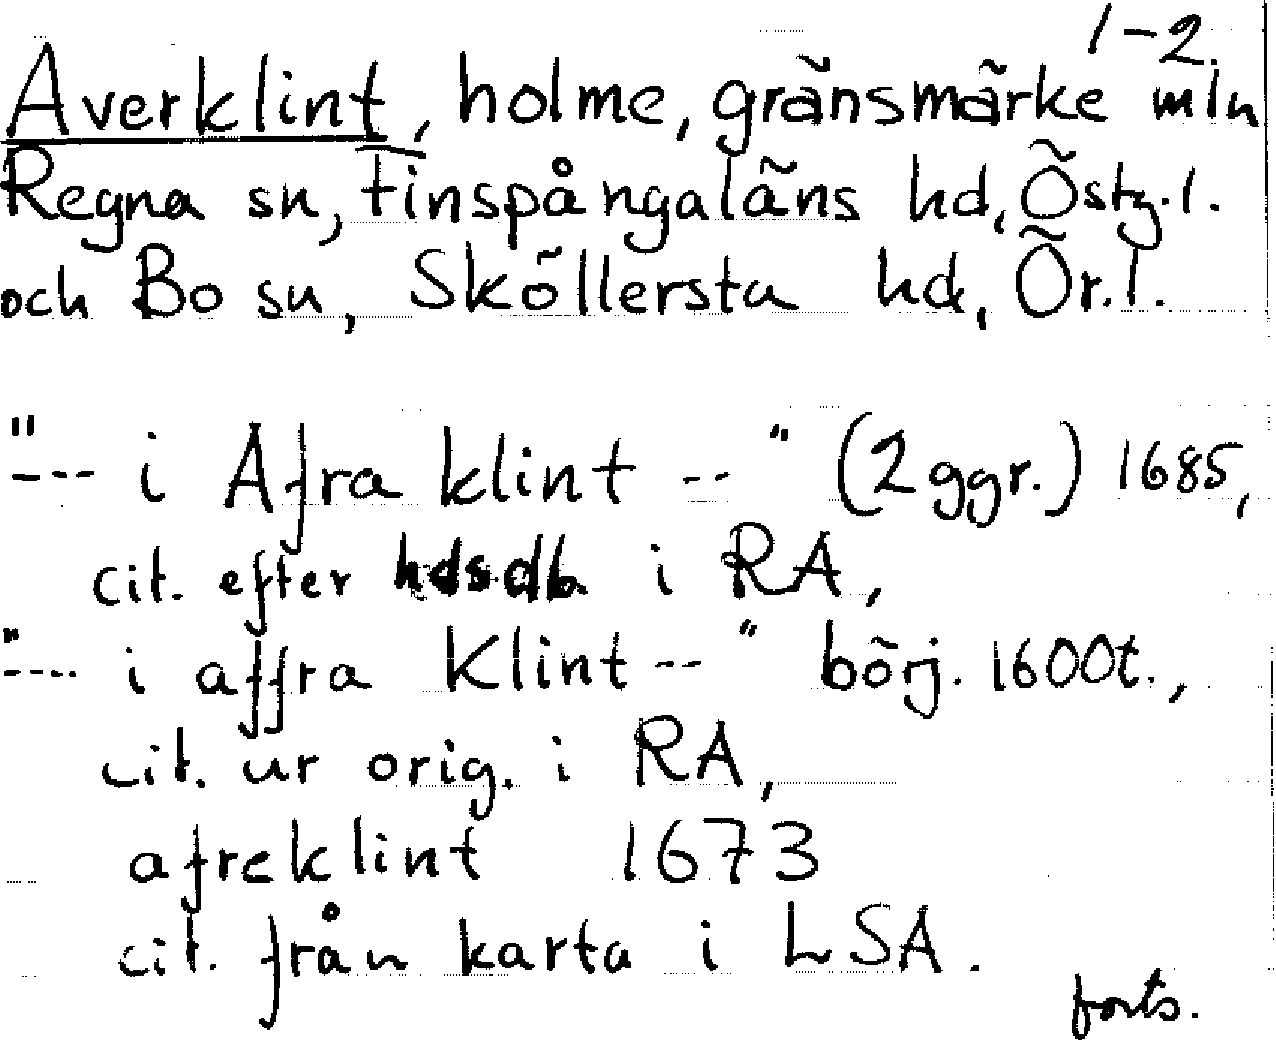 1-2.
Averklint, holme, gränsmärke mln
Regna sn, Finspångaläns hd, Östg.l.
och Bo sn, Sköllersta hd, Ör.l.
"--- i Afra klint --" (2 ggr.) 1685,
cit. efter hdsdb. i RA,
"---- i affra Klint --" börj. 1600t.,
cit. ur orig. i RA,
afreklint 1673
cit. från karta i LSA.
forts.